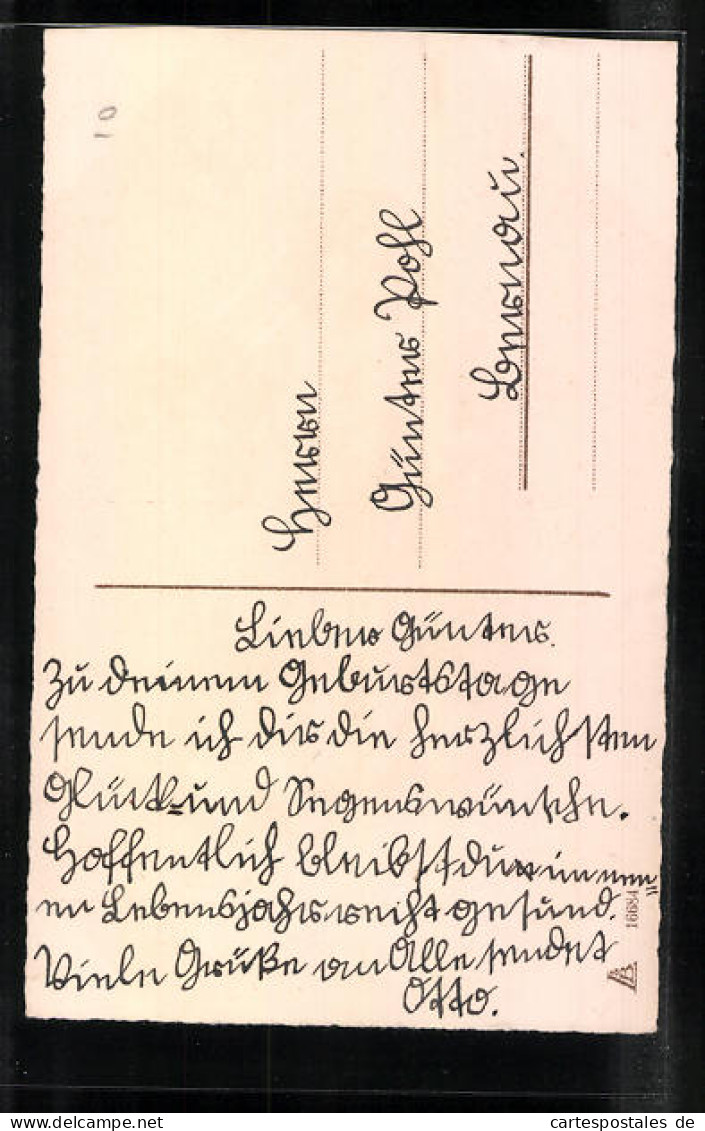 10
Herrn
Günter Pohl
Bernau.
Lieber Günter.
Zu deinem Geburtstage
sende ich dir die herzlichsten
Glück= und Segenswünsche.
Hoffentlich bleibst du im neu"
en Lebensjahr recht gesund.
Viele Grüße an Alle sendet
Otto.
16684
delcampe.net
cartespostales de